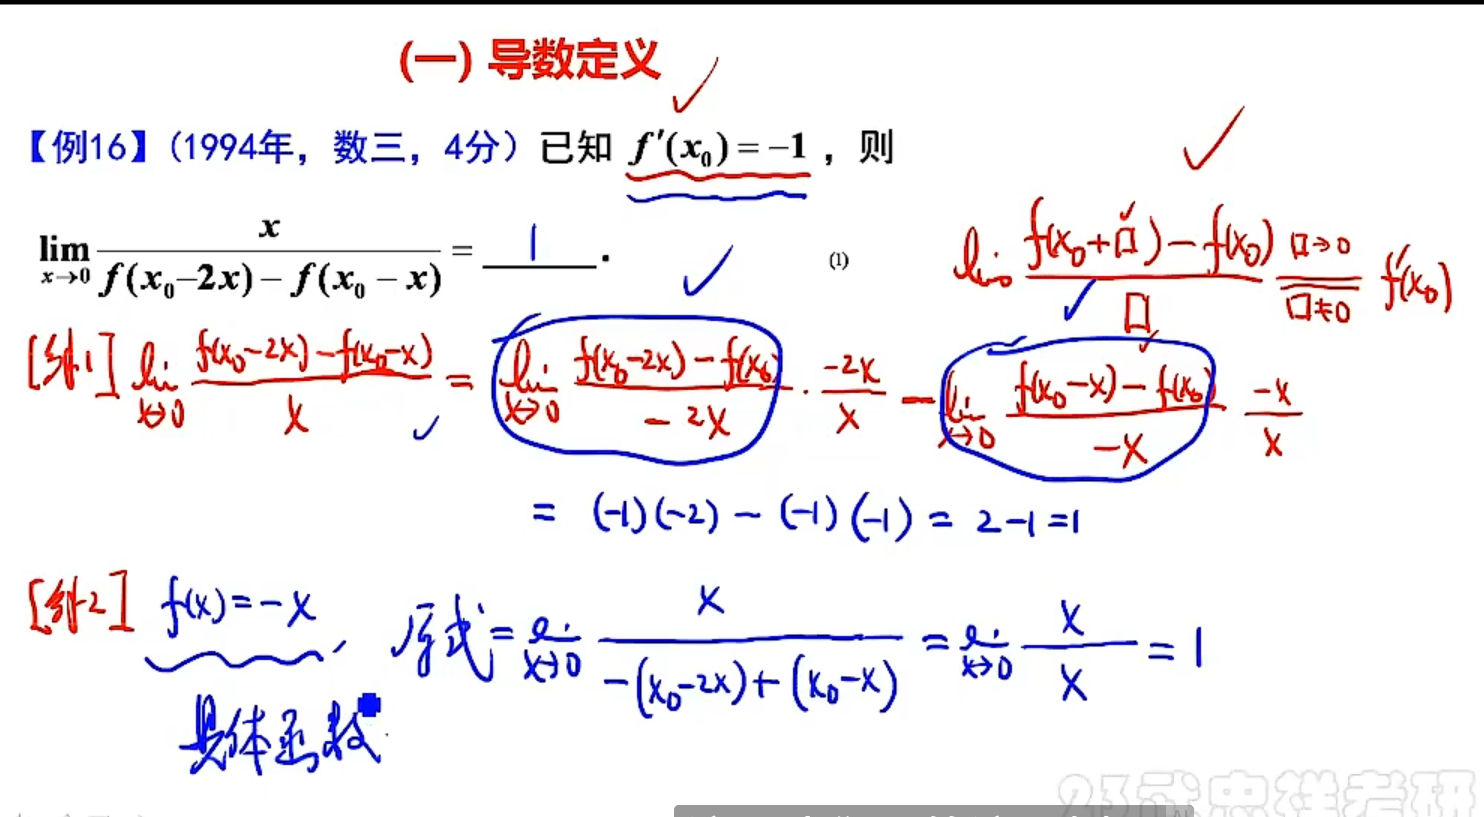 (一) 导数定义
【例16】(1994年，数三，4分) 已知 f′(x₀) = −1 ，则
lim x→0 x / (f(x₀−2x) − f(x₀−x)) = 1 . (1)
lim (f(x₀+□) − f(x₀)) / □ □→0 □≠0 f′(x₀)
[解1] lim x→0 (f(x₀−2x) − f(x₀−x)) / x = lim x→0 (f(x₀−2x) − f(x₀)) / (−2x) · (−2x) / x − lim x→0 (f(x₀−x) − f(x₀)) / (−x) (−x) / x
= (−1)(−2) − (−1)(−1) = 2−1 = 1
[解2] f(x) = −x 原式 = lim x→0 x / (−(x₀−2x) + (x₀−x)) = lim x→0 x / x = 1
具体函数
23武忠祥考研